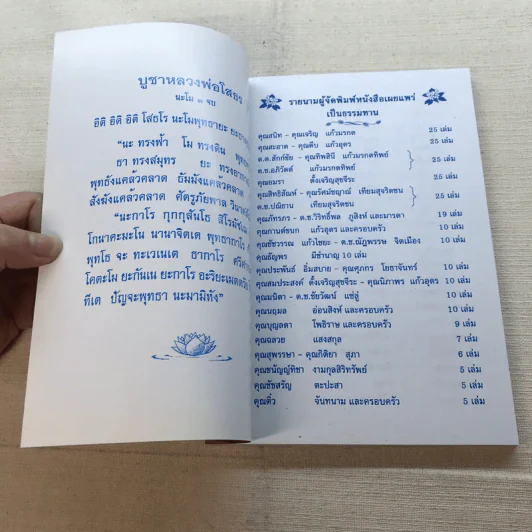 บูชาหลวงพ่อโสธร
นะโม ๓ จบ
อิติ อิติ อิติ โสธโร นะโมพุทธายะ
"นะ ทรงฟ้า โม ทรงดิน
ธา ทรงสมุทร ยะ
พุทธังแคล้วคลาด ธัมมังแคล้วคลาด
สังฆังแคล้วคลาด ศัตรูภัยพาล
"นะกาโร กุกกุสันโธ
โกนาคะมะโน นานาจิตเต
พุทโธ จะ ทะเวเนเต ธากาโร
โคตะโม ยะกันเน ยะกาโร
ทีเต ปัญจะพุทธา นะมามิหัง"
รายนามผู้จัดพิมพ์หนังสือเผยแพร่
เป็นธรรมทาน
คุณสนิท - คุณเจริญ แก้วมรกต 25 เล่ม
คุณสะอาด - คุณตีบ แก้วอุดร 25 เล่ม
ด.ต.สักก์ชัย - คุณทิพสินี แก้วมรกตทิพย์
ด.ช.อภิวัตต์ แก้วมรกตทิพย์ 25 เล่ม
คุณอมรา ตั้งเจริญสุขจีระ 25 เล่ม
คุณสิทธิสัณห์ - คุณรัศมีชญาณ์ เทียมสุจริตชน
ด.ช.ปณิธาน เทียมสุจริตชน 25 เล่ม
คุณภัทรภร - ด.ช.วิริทธิ์พล ภูสิงห์ และมารดา 19 เล่ม
คุณกานต์ชนก แก้วอุดร และครอบครัว 10 เล่ม
คุณชัชวรรณ แก้วไชยะ - ด.ช.ณัฏพรรษ จิตเมือง
คุณธัญพร มีชำนาญ 10 เล่ม
คุณประพันธ์ อิ่มสบาย - คุณศุภกร โยธาจันทร์ 10 เล่ม
คุณสมประสงค์ ตั้งเจริญสุขจีระ - คุณนิภาพร แก้วอุดร 10 เล่ม
คุณมนิดา - ด.ช.ชัยวัฒน์ แซ่ลู่ 10 เล่ม
คุณนฤมล อ่อนสิงห์ และครอบครัว 10 เล่ม
คุณบุญลดา โพธิราษ และครอบครัว 9 เล่ม
คุณฉลวย แสงสกุล 7 เล่ม
คุณสุพรรษา - คุณกิติยา สุภา 6 เล่ม
คุณชนัญญ์ทิชา งามกุลสิริทรัพย์ 5 เล่ม
คุณชัชสรัญ ตะปะสา 5 เล่ม
คุณติ๋ว จันทนาม และครอบครัว 5 เล่ม